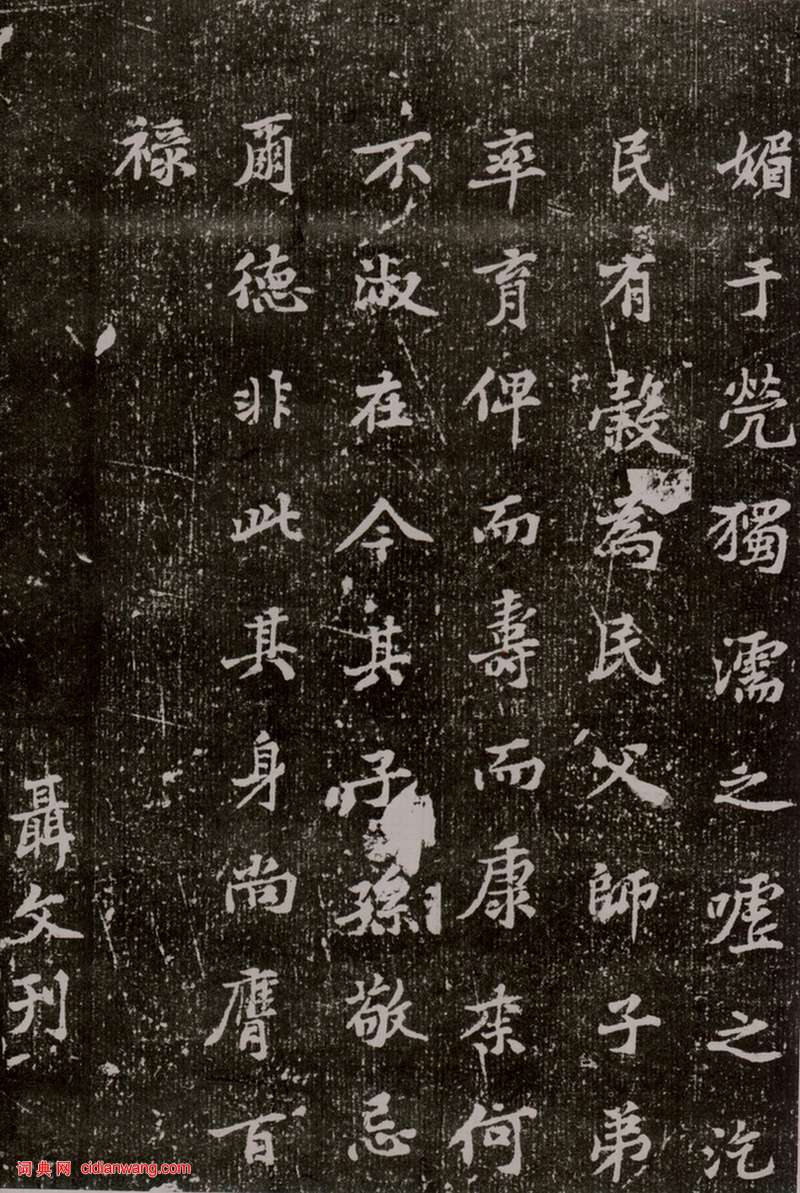 媚于煢獨濡之噓之汔
民有穀為民父師子弟
率育俾而壽而康柰何
不淑在今其子孫敬忌
爾德非此其身尚膺百
祿
聶文刊
词典网 cidianwang.com